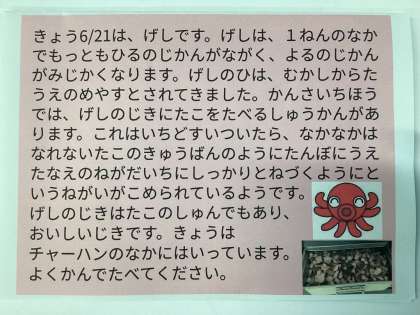 きょう6/21は、げしです。げしは、１ねんのなか
でもっともひるのじかんがながく、よるのじかん
がみじかくなります。げしのひは、むかしからた
うえのめやすとされてきました。かんさいちほう
では、げしのじきにたこをたべるしゅうかんがあ
ります。これはいちどすいついたら、なかなかは
なれないたこのきゅうばんのようにたんぼにうえ
たなえのねがだいちにしっかりとねづくようにと
いうねがいがこめられているようです。
げしのじきはたこのしゅんでもあり、
おいしいじきです。きょうは
チャーハンのなかにはいっています。
よくかんでたべてください。